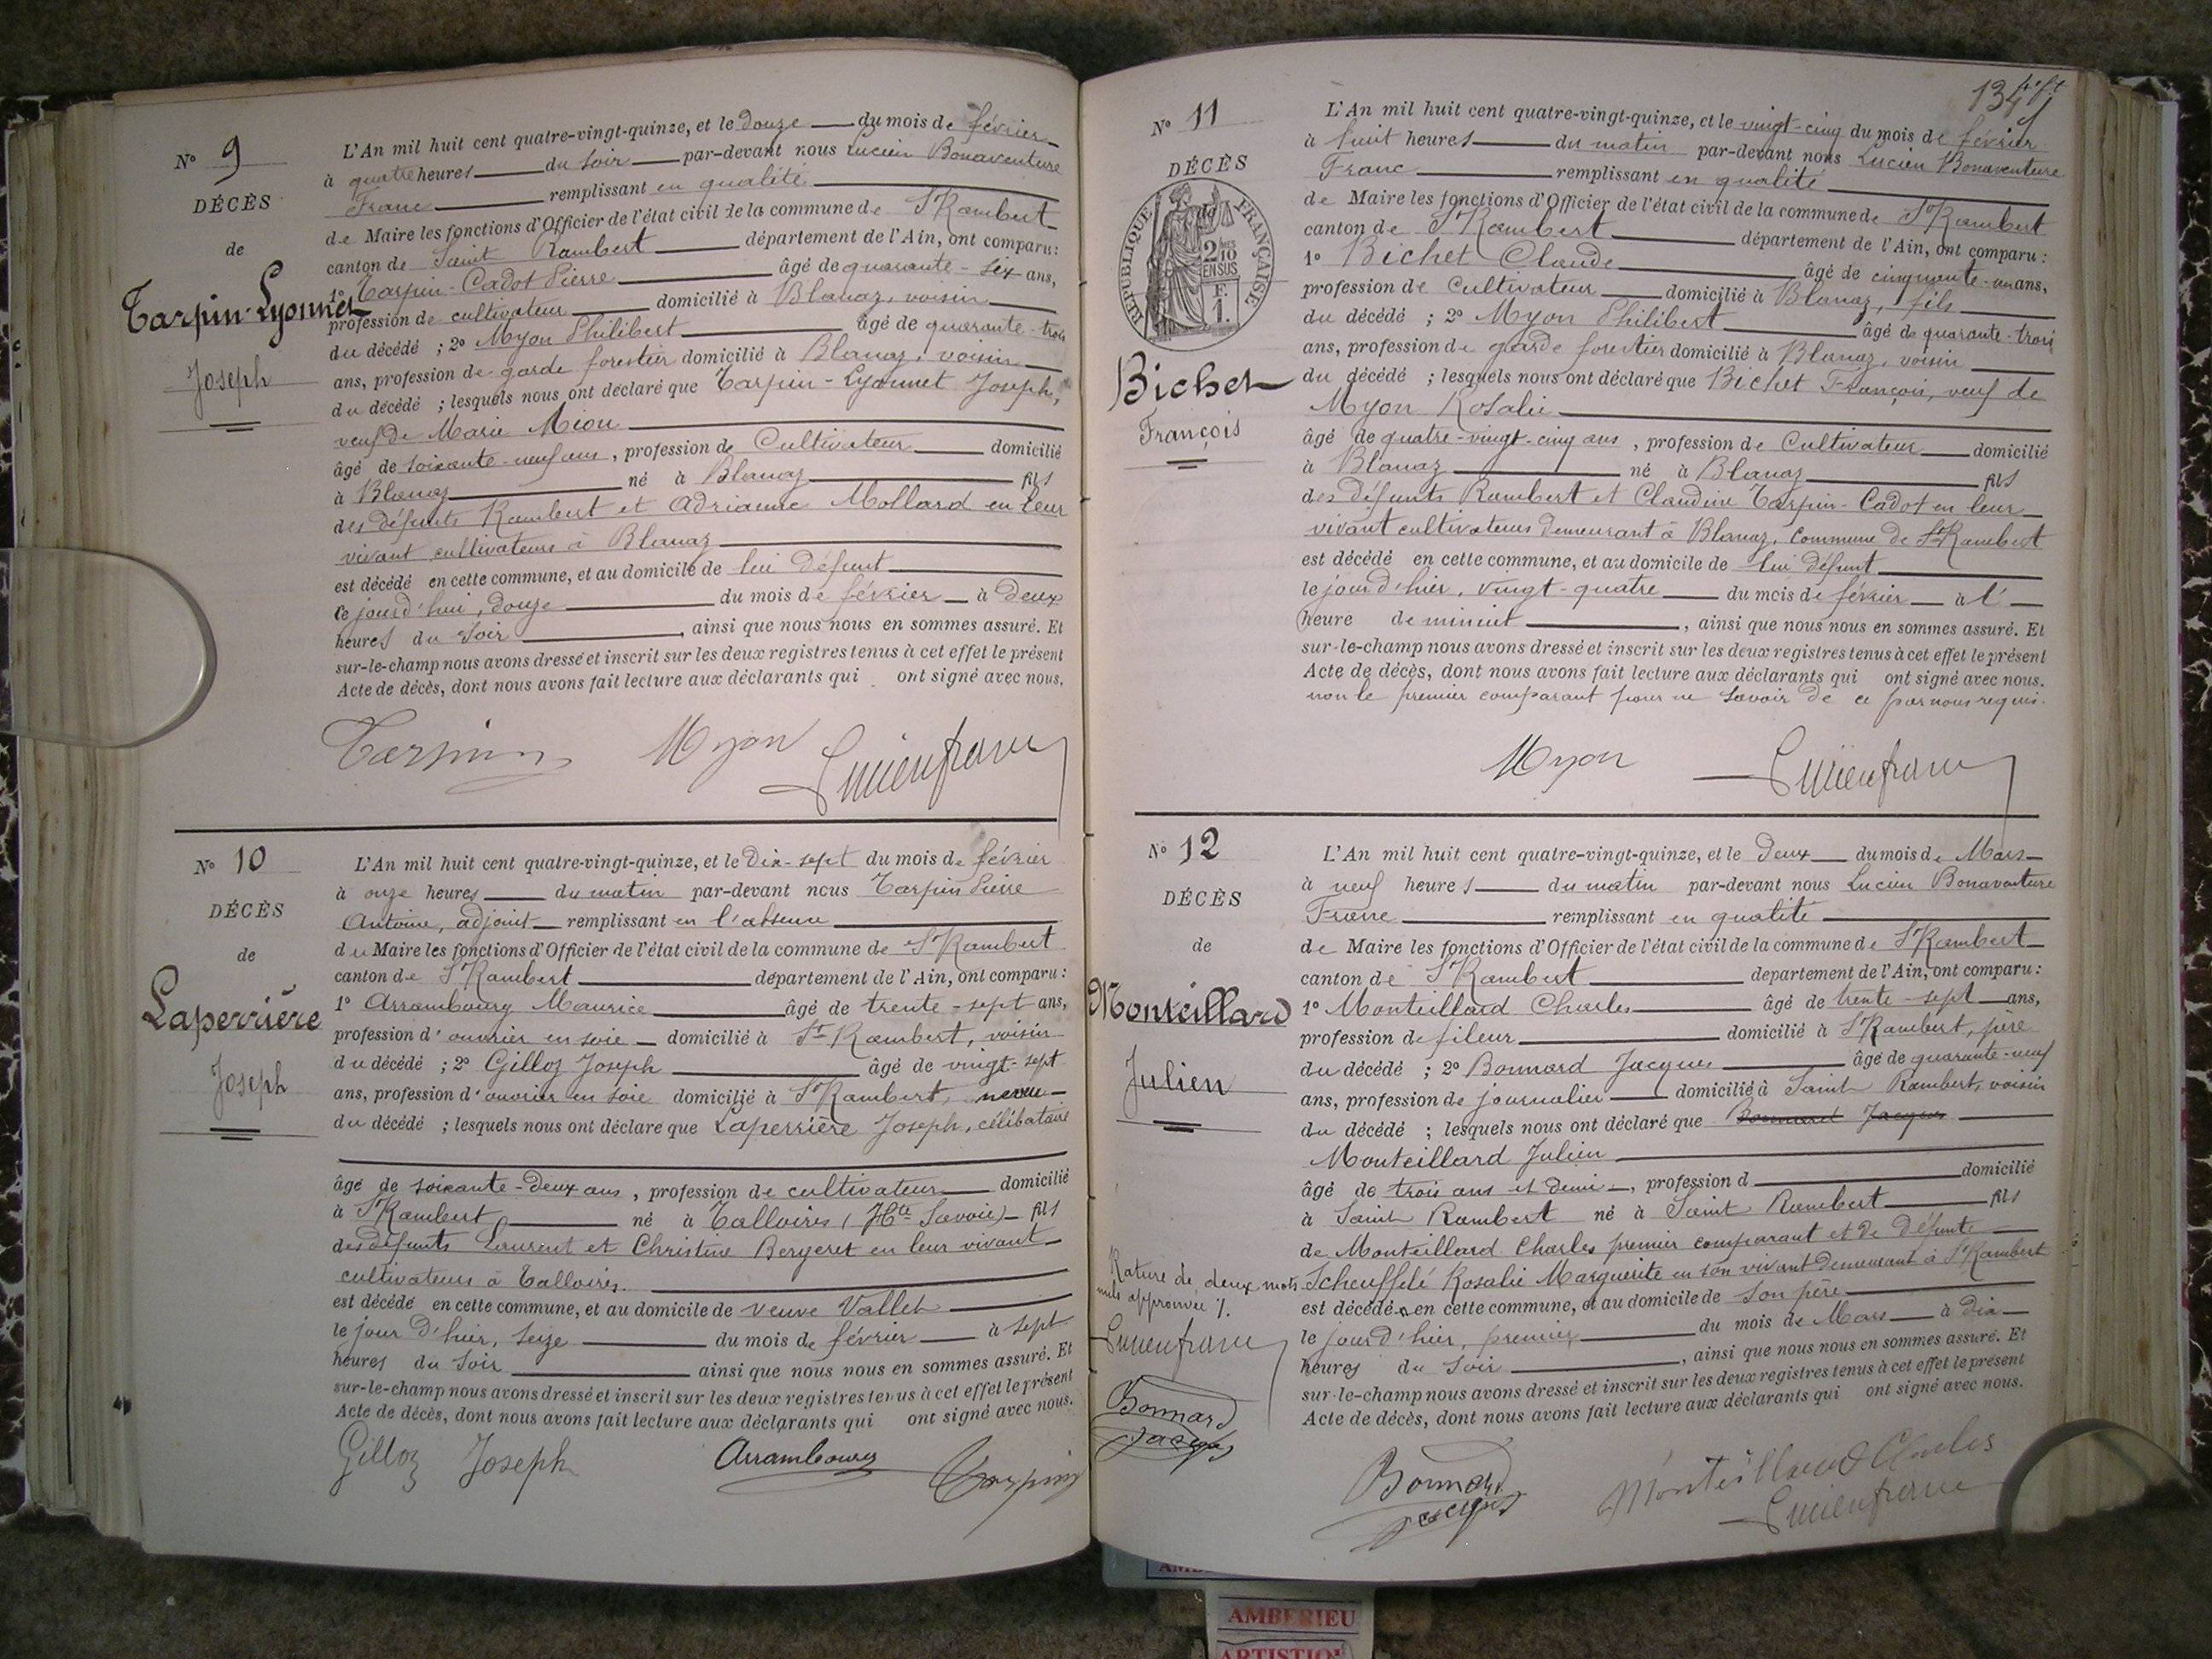 Nº 9
DÉCÈS
de
Tarpin-Lyonnet
Joseph
L'An mil huit cent quatre-vingt-quinze, et le douze du mois de février
à quatre heures du soir par-devant nous Lucien Bonaventure
Franc remplissant en qualité
de Maire les fonctions d'Officier de l'état civil de la commune de St Rambert
canton de Saint Rambert département de l'Ain, ont comparu:
1º Tarpin-Cadot Pierre âgé de quarante-six ans,
profession de cultivateur domicilié à Blanaz, voisin
du décédé ; 2º Myon Philibert âgé de quarante-trois
ans, profession de garde forestier domicilié à Blanaz, voisin
du décédé ; lesquels nous ont déclaré que Tarpin-Lyonnet Joseph,
veuf de Marie Miou
âgé de soixante-neuf ans, profession de Cultivateur domicilié
à Blanaz né à Blanaz fils
des défunts Rambert et Adrianne Mollard en leur
vivant cultivateurs à Blanaz
est décédé en cette commune, et au domicile de lui défunt
ce jourd'hui, douze du mois de février à deux
heures du soir, ainsi que nous nous en sommes assuré. Et
sur-le-champ nous avons dressé et inscrit sur les deux registres tenus à cet effet le présent
Acte de décès, dont nous avons fait lecture aux déclarants qui ont signé avec nous.
Tarpin Myon Lucien franc
Nº 10
DÉCÈS
de
Laperrière
Joseph
L'An mil huit cent quatre-vingt-quinze, et le Dix-sept du mois de février
à onze heures du matin par-devant nous Tarpin Pierre
Antoine, adjoint remplissant en l'absence
du Maire les fonctions d'Officier de l'état civil de la commune de St Rambert
canton de St Rambert département de l'Ain, ont comparu :
1º Arrambourg Maurice âgé de trente-sept ans,
profession d'ouvrier en soie domicilié à St Rambert, voisin
du décédé ; 2º Gilloz Joseph âgé de vingt-sept
ans, profession d'ouvrier en soie domicilié à St Rambert, neveu
du décédé ; lesquels nous ont déclaré que Laperrière Joseph, célibataire
âgé de soixante-deux ans, profession de cultivateur domicilié
à St Rambert né à Talloires (Hte Savoie) fils
des défunts Laurent et Christine Bergeret en leur vivant
cultivateurs à Talloires.
est décédé en cette commune, et au domicile de veuve Vallet
le jour d'hier, seize du mois de février à sept
heures du soir ainsi que nous nous en sommes assuré. Et
sur-le-champ nous avons dressé et inscrit sur les deux registres tenus à cet effet le présent
Acte de décès, dont nous avons fait lecture aux déclarants qui ont signé avec nous.
Gilloz Joseph Arrambourg Tarpin
134
Nº 11
DÉCÈS
de
RÉPUBLIQUE FRANÇAISE
2 10
EN SUS
F.
1.
Bichet
François
L'An mil huit cent quatre-vingt-quinze, et le vingt-cinq du mois de février
à huit heures du matin par-devant nous Lucien Bonaventure
Franc remplissant en qualité
de Maire les fonctions d'Officier de l'état civil de la commune de St Rambert
canton de St Rambert département de l'Ain, ont comparu :
1º Bichet Claude âgé de cinquante-un ans,
profession de Cultivateur domicilié à Blanaz, fils
du décédé ; 2º Myon Philibert âgé de quarante-trois
ans, profession de garde forestier domicilié à Blanaz, voisin
du décédé ; lesquels nous ont déclaré que Bichet François, veuf de
Myon Rosalie
âgé de quatre-vingt-cinq ans, profession de Cultivateur domicilié
à Blanaz né à Blanaz fils
des défunts Rambert et Claudine Tarpin-Cadot en leur
vivant cultivateurs demeurant à Blanaz, Commune de St Rambert
est décédé en cette commune, et au domicile de lui défunt
le jour d'hier, vingt-quatre du mois de février à l'
heure de minuit, ainsi que nous nous en sommes assuré. Et
sur-le-champ nous avons dressé et inscrit sur les deux registres tenus à cet effet le présent
Acte de décès, dont nous avons fait lecture aux déclarants qui ont signé avec nous.
non le premier comparant pour ne savoir de ce par nous requis.
Myon Lucien franc
Nº 12
DÉCÈS
de
Monteillard
Julien
L'An mil huit cent quatre-vingt-quinze, et le deux du mois de Mars
à neuf heures du matin par-devant nous Lucien Bonaventure
Franc remplissant en qualité
de Maire les fonctions d'Officier de l'état civil de la commune de St Rambert
canton de St Rambert département de l'Ain, ont comparu :
1º Monteillard Charles âgé de trente-sept ans,
profession de fileur domicilié à St Rambert, père
du décédé ; 2º Bonnard Jacques âgé de quarante-neuf
ans, profession de journalier domicilié à Saint Rambert, voisin
du décédé ; lesquels nous ont déclaré que Bonnard Jacques
Monteillard Julien
âgé de trois ans et demi, profession d domicilié
à Saint Rambert né à Saint Rambert fils
de Monteillard Charles premier comparant et de défunte
Scheuffelé Rosalie Marguerite en son vivant demeurant à St Rambert
est décédé en cette commune, et au domicile de son père
le jour d'hier, premier du mois de Mars à dix
heures du soir, ainsi que nous nous en sommes assuré. Et
sur-le-champ nous avons dressé et inscrit sur les deux registres tenus à cet effet le présent
Acte de décès, dont nous avons fait lecture aux déclarants qui ont signé avec nous.
Rature de deux mots
nuls approuvée
Lucien franc
Bonnard
Jacques
Bonnard
Jacques
Monteillard Charles
Lucien franc
AMBERIEU